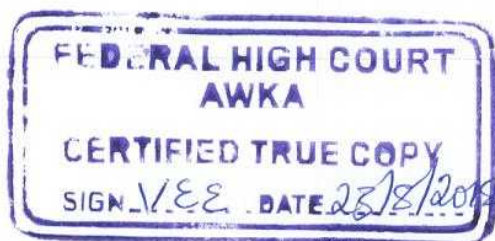 FEDERAL HIGH COURT
AWKA
CERTIFIED TRUE COPY
SIGN VEE DATE 23/8/2018